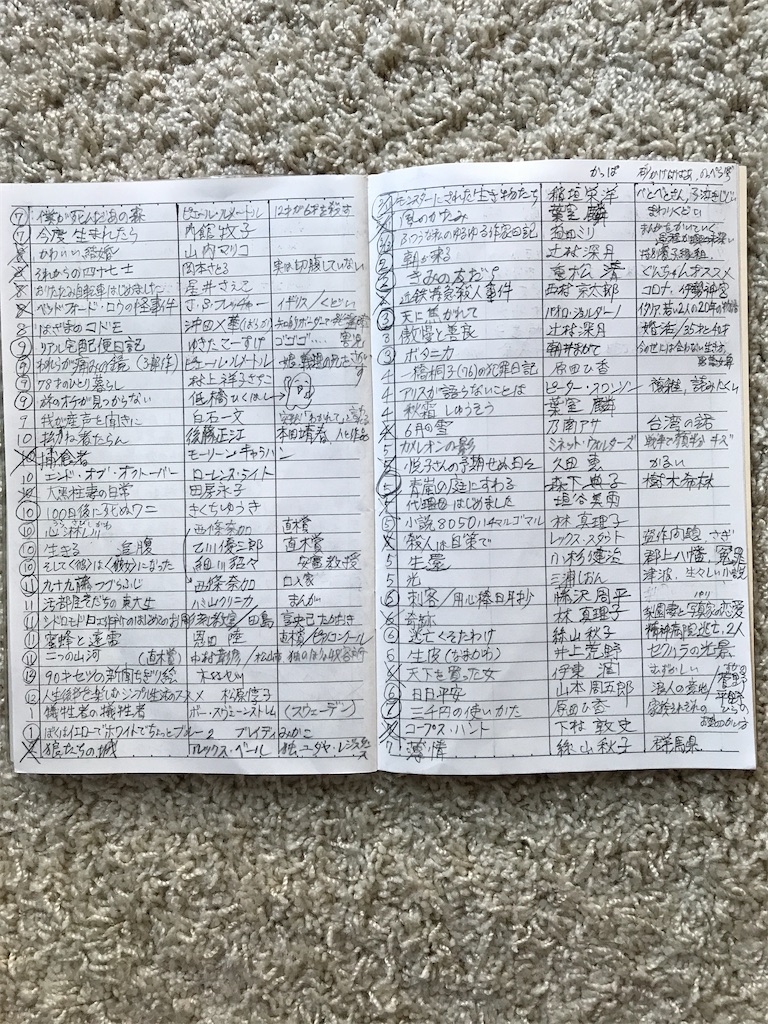 ⑦ 僕が死んだあの森 ピエール・ルメートル 12才が6才を殺す
⑦ 今度生まれたら 内館牧子
8 かわいい結婚 山内マリコ
8 それからの四十七士 岡本さとる 実は切腹していない
8 おりたたみ自転車はじめました 星井さえこ
8 ベッドフォード・ロウの怪事件 J・S・フレッチャー イギリス/くどい
8 はざまのコドモ 沖田×華(ばっか)
⑨ リアル宅配便日記 ゆきたこーすけ ゴゴゴ…
⑨ われらが痛みの鏡(3部作) ピエール・ルメートル
⑨ 78才のひとり暮らし 村上祥子さちこ
⑨ 旅のオチが見つからない 低橋
9 我が産声を聞きに 白石一文
10 拗ね者たらん 後藤正江 本田靖春、人と作品
10 捕食者 モーリーン・キャラハン
10 エンド・オブ・オクトーバー ローレンス・ライト
10 大黒柱妻の日常 田房永子
⑩ 100日後に死ぬワニ きくちゆうき
10 心淋し川 西條奈加 直木賞
⑩ 生きる 追腹 乙川優三郎 直木賞
⑩ そして〈彼〉は〈彼女〉になった 細川貂々 安冨教授
⑪ 九十九藤 つづらふじ 西條奈加 口入家
11 ハミ山クリニカ まんが
⑪ お彫刻教室/田島 享央己 たかおき
⑪ 蜜蜂と遠雷 恩田陸 直木賞/ピアノコンクール
⑪ 二つの山河 (直木賞) 中村彰彦/松山市
⑬ 90才セツの新聞ちぎり絵 木村セツ
12 人生後半を楽しむシンプル生活のススメ 松原惇子
1 犠牲者の犠牲者 ボー・スヴェーンストレム (スウェーデン)
① ぼくはイエローでホワイトでちょっとブルー2 ブレイディみかこ
狼たちの城 アレックス・ベール 独、ユダヤ・レジスタンス
かっぱ 砂かけばばあ、のっぺらぼう
モンスターにされた生き物たち 稲垣栄洋 べとべとさん、子泣きじじい
風のかたみ 葉室麟 まわりくどい
ふつうな私のゆるゆる作家日記 益田ミリ
② 朝が来る 辻村深月 特別養子縁組
② きみの友だち 重松清 ぐんちゃんオススメ
近鉄特急殺人事件 西村京太郎 コロナ・伊勢神宮
③ 天に焦がれて パオロ・ジョルダーノ
3 傲慢と善良 辻村深月 婚活/35才と39才
③ ボタニカ 朝井まかて
4 一橋桐子(76)の犯罪日記 原田ひ香
4 アリスが語らないことは ピーター・スワンソン 複雑、読みたくない
4 秋霜 しゅうそう 葉室麟
6月の雪 乃南アサ 台湾の話
カメレオンの影 ミネット・ウォルターズ 戦争で顔半分キズ
悦子さんの予期せぬ日々 久田恵 かるい
⑤ 青嵐の庭にすわる 森下典子 樹木希林
代理母はじめました 垣谷美雨
⑤ 小説8050 ハチマルゴマル 林真理子
殺人は自策で レックス・スタウト 盗作問題、さぎ
5 生還 小杉健治 郡上八幡、冤罪
5 光 三浦しをん 津波、生々しい小説
⑥ 刺客/用心棒日月抄 藤沢周平
⑥ 奇跡 林真理子 梨園妻と写真家の恋愛
⑥ 逃亡くそたわけ 絲山秋子 精神病院逃亡、2人
6 生皮(なまかわ) 井上荒野 セクハラの光景
天下を買った女 伊東潤 むずかしい
⑥ 日日平安 山本周五郎
⑦ 三千円の使いかた 原田ひ香 家族それぞれの お金のつかい方
コープス・ハント 下村敦史
7 薄情 絲山秋子 群馬県